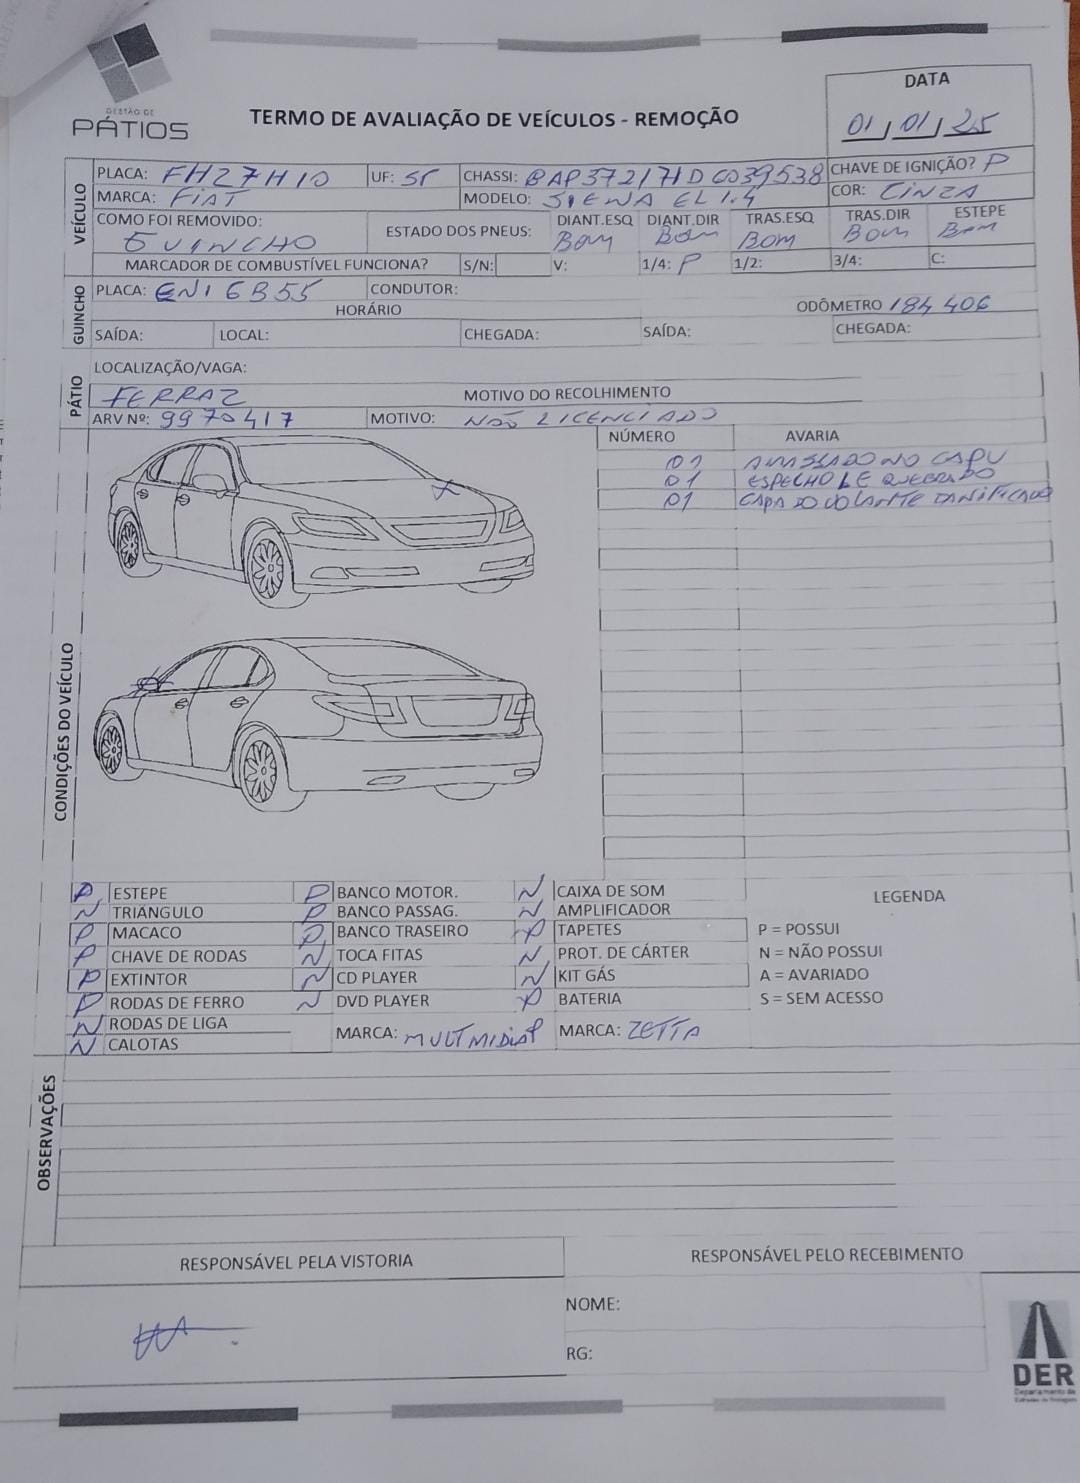 GESTÃO DE
PÁTIOS
TERMO DE AVALIAÇÃO DE VEÍCULOS - REMOÇÃO
DATA
01/01/25
VEÍCULO
PLACA: FHZ7H10 UF: SP CHASSI: 8AP372171DC039538 CHAVE DE IGNIÇÃO? P
MARCA: FIAT MODELO: SIENA EL 1.4 COR: CINZA
COMO FOI REMOVIDO: GUINCHO
ESTADO DOS PNEUS: DIANT.ESQ DIANT.DIR TRAS.ESQ TRAS.DIR ESTEPE
BOM BOM BOM BOM BOM
MARCADOR DE COMBUSTÍVEL FUNCIONA? S/N: V: 1/4: P 1/2: 3/4: C:
GUINCHO
PLACA: ENI6B55 CONDUTOR:
HORÁRIO ODÔMETRO 184406
SAÍDA: LOCAL: CHEGADA: SAÍDA: CHEGADA:
PÁTIO
LOCALIZAÇÃO/VAGA:
FERRAZ MOTIVO DO RECOLHIMENTO
ARV Nº: 9970417 MOTIVO: NÃO LICENCIADO
CONDIÇÕES DO VEÍCULO
NÚMERO AVARIA
01 AMASSADO NO CAPU
01 ESPECHO LE QUEBRADO
01 CAPA DO VOLANTE DANIFICADO
P ESTEPE P BANCO MOTOR. N CAIXA DE SOM LEGENDA
N TRIÂNGULO P BANCO PASSAG. N AMPLIFICADOR
P MACACO P BANCO TRASEIRO P TAPETES P = POSSUI
P CHAVE DE RODAS N TOCA FITAS N PROT. DE CÁRTER N = NÃO POSSUI
P EXTINTOR N CD PLAYER N KIT GÁS A = AVARIADO
P RODAS DE FERRO N DVD PLAYER P BATERIA S = SEM ACESSO
N RODAS DE LIGA MARCA: MULTMIDIA P MARCA: ZETTA
N CALOTAS
OBSERVAÇÕES
RESPONSÁVEL PELA VISTORIA RESPONSÁVEL PELO RECEBIMENTO
NOME:
RG:
DER
Departamento de
Estradas de Rodagem